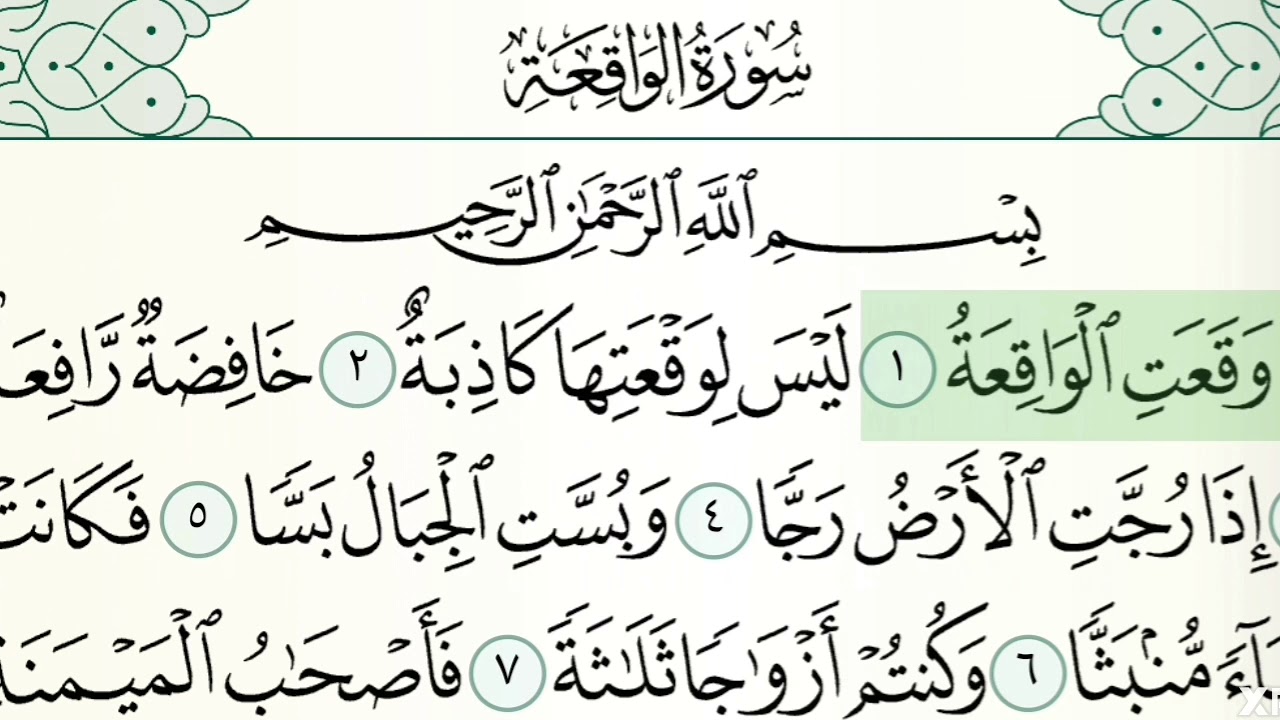 سُورَةُ الوَاقِعَةِ
بِسْمِ ٱللَّهِ ٱلرَّحْمَٰنِ ٱلرَّحِيمِ
وَقَعَتِ ٱلْوَاقِعَةُ ١ لَيْسَ لِوَقْعَتِهَا كَاذِبَةٌ ٢ خَافِضَةٌ رَّافِعَ
إِذَا رُجَّتِ ٱلْأَرْضُ رَجًّا ٤ وَبُسَّتِ ٱلْجِبَالُ بَسًّا ٥ فَكَانَتْ
بَآءً مُّنۢبَثًّا ٦ وَكُنتُمْ أَزْوَٰجًا ثَلَٰثَةً ٧ فَأَصْحَٰبُ ٱلْمَيْمَنَةِ